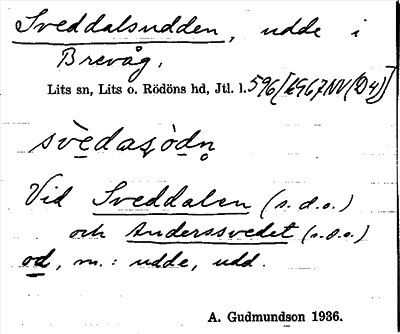 Sveddalsudden, udde i
Brevåg.
Lits sn, Lits o. Rödöns hd, Jtl. l. 596 [EG67NV(D4)]
Vid Sveddalen (s.d.o.)
och Anderssvedet (s.d.o.)
od, m.: udde, udd.
A. Gudmundson 1936.